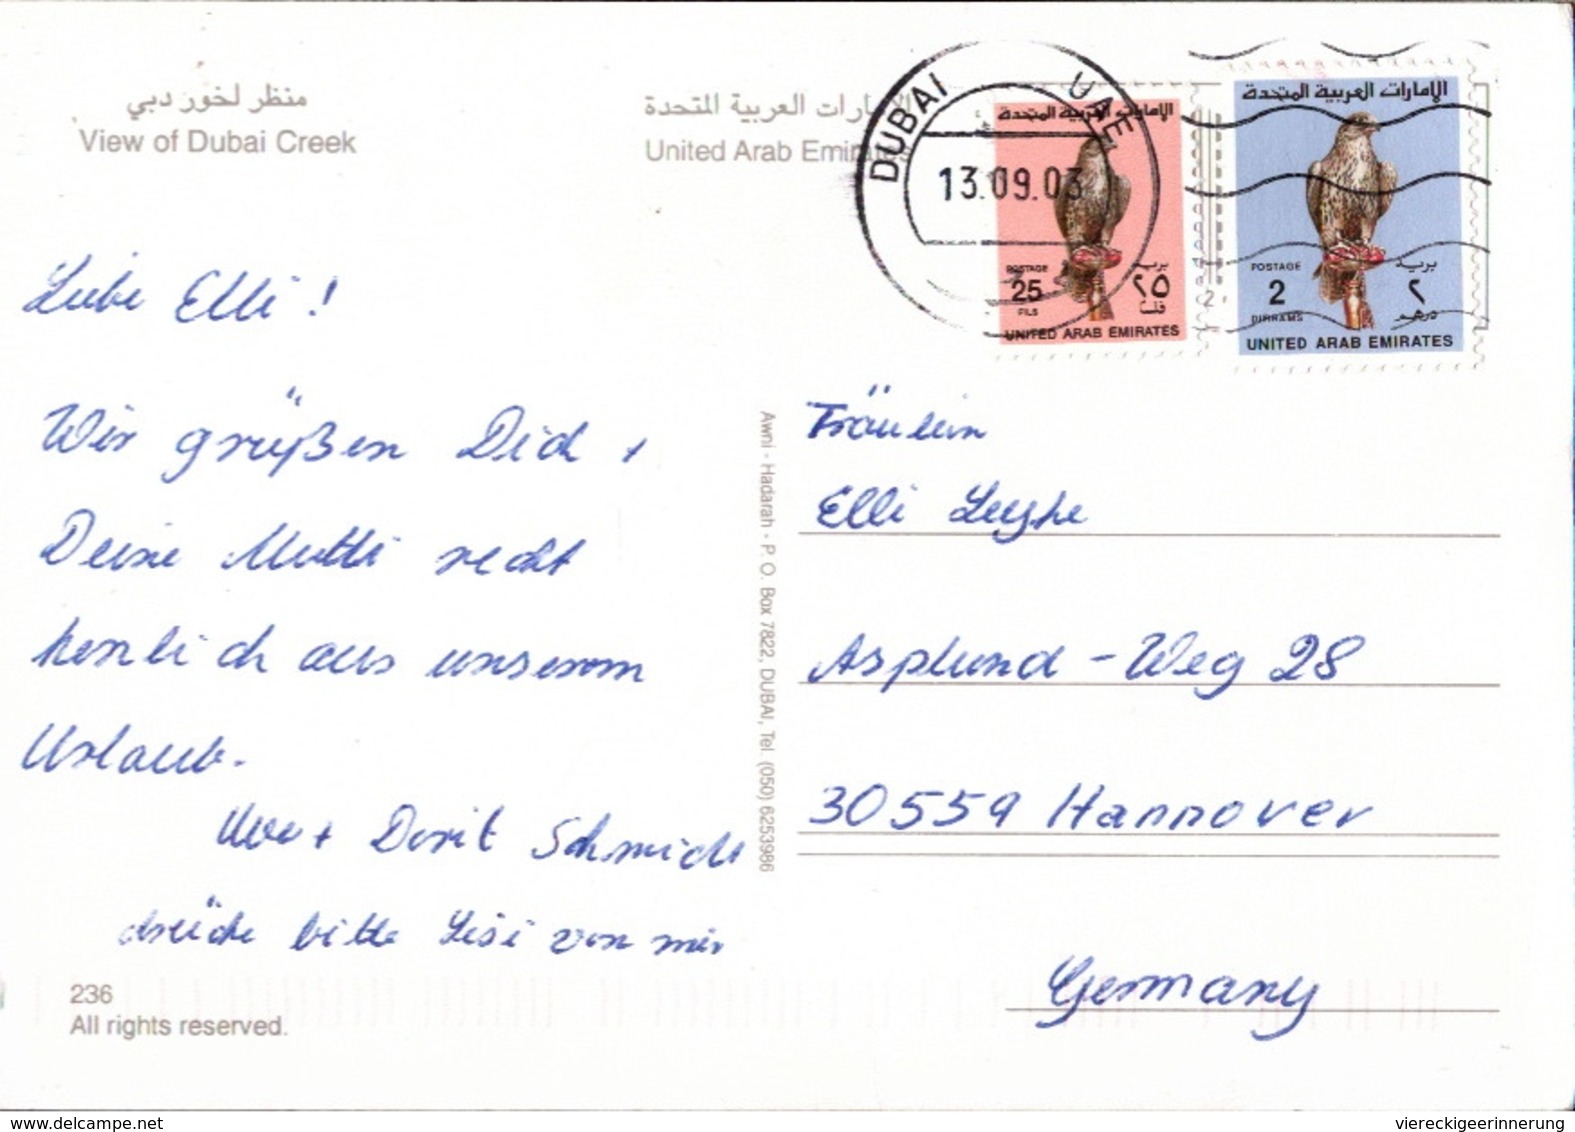 منظر لخور دبي
View of Dubai Creek
الإمارات العربية المتحدة
United Arab Emirates
DUBAI UAE
13.09.03
الإمارات العربية المتحدة
POSTAGE بريد
25 ٢٥
FILS فلسا
UNITED ARAB EMIRATES
الإمارات العربية المتحدة
POSTAGE بريد
2 ٢
DIRHAMS درهم
UNITED ARAB EMIRATES
Liebe Elli !
Wir grüßen Dich +
Deine Mutti recht
herzlich aus unserem
Urlaub.
Uwe + Dorit Schmidt
drücke bitte Lisi von mir
236
All rights reserved.
Awni - Hadarah - P. O. Box 7822, DUBAI, Tel. (050) 6253986
Fräulein
Elli
Asplund - Weg 28
30559 Hannover
Germany
delcampe.net
viereckigeerinnerung